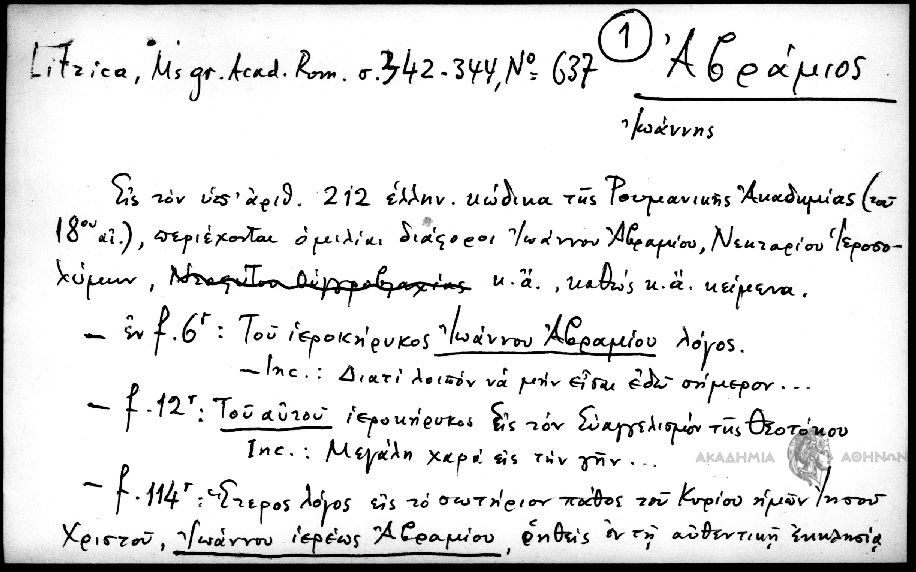 Litzica, Ms gr. Acad. Rom. σ. 342-344, Nº 637 ① Ἀβράμιος
Ἰωάννης
Εἰς τὸν ὑπ' ἀριθ. 212 ἑλλην. κώδικα τῆς Ρουμανικῆς Ἀκαδημίας (τοῦ
18ου αἰ.), περιέχονται ὁμιλίαι διάφοροι Ἰωάννου Ἀβραμίου, Νεκταρίου Ἱεροσο-
λύμων, κ.ἄ., καθὼς κ.ἄ. κείμενα.
— ἐν f. 6r : Τοῦ ἱεροκήρυκος Ἰωάννου Ἀβραμίου λόγος.
— Inc.: Διατί λοιπὸν νὰ μὴν εἶσαι ἐδῶ σήμερον...
— f. 12r : Τοῦ αὐτοῦ ἱεροκήρυκος εἰς τὸν Εὐαγγελισμὸν τῆς Θεοτόκου
Inc.: Μεγάλη χαρὰ εἰς τὴν γῆν...
ΑΚΑΔΗΜΙΑ ΑΘΗΝΩΝ
— f. 114r : Ἕτερος λόγος εἰς τὸ σωτήριον πάθος τοῦ Κυρίου ἡμῶν Ἰησοῦ
Χριστοῦ, Ἰωάννου ἱερέως Ἀβραμίου, ῥηθεὶς ἐν τῇ αὐθεντικῇ ἐκκλησίᾳ